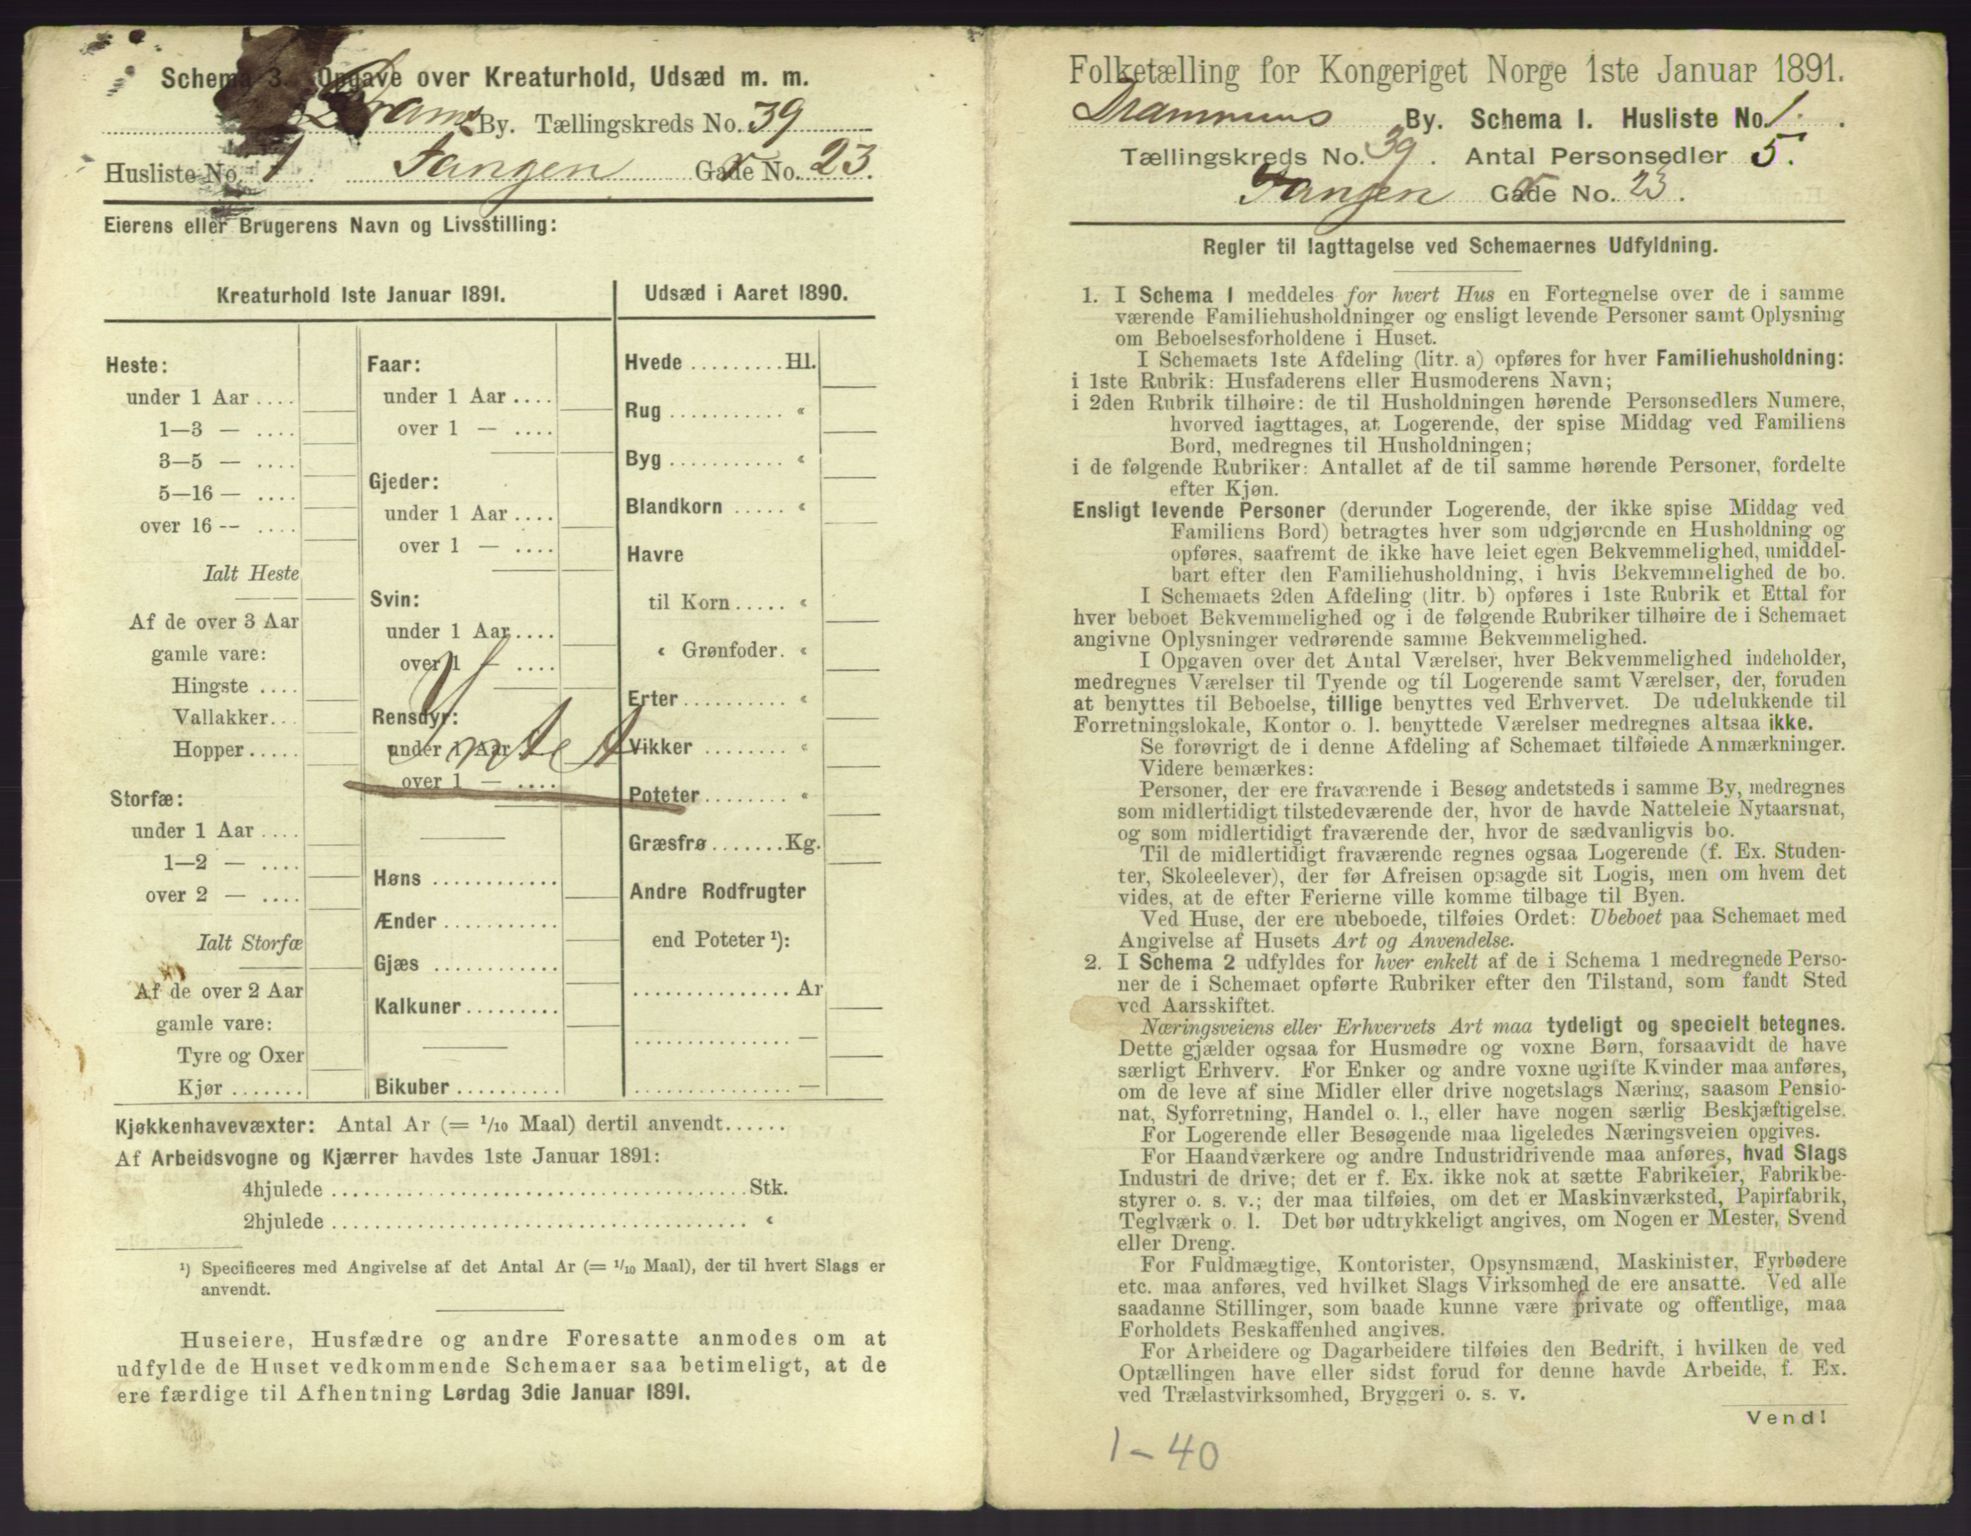 Schema 3. Opgave over Kreaturhold, Udsæd m. m.
Drams By. Tællingskreds No. 39
Husliste No. 1. Tangen Gade No. 23.
Eierens eller Brugerens Navn og Livsstilling:
Kreaturhold 1ste Januar 1891.
Heste:
under 1 Aar ....
1—3 — ....
3—5 — ....
5—16 — ....
over 16 -- ....
Ialt Heste
Af de over 3 Aar
gamle vare:
Hingste ....
Vallakker...
Hopper.....
Storfæ:
under 1 Aar ....
1—2 — ....
over 2 — ....
Ialt Storfæ
Af de over 2 Aar
gamle vare:
Tyre og Oxer
Kjør .......
Faar:
under 1 Aar ....
over 1 — ....
Gjeder:
under 1 Aar ....
over 1 — ....
Svin:
under 1 Aar ....
over 1 — ....
Rensdyr:
under 1 Aar
over 1 — ....
Intet
Høns ............
Ænder ...........
Gjæs ............
Kalkuner.........
Bikuber ..........
Udsæd i Aaret 1890.
Hvede .........Hl.
Rug ........... «
Byg ........... «
Blandkorn ..... «
Havre
til Korn..... «
« Grønfoder. «
Erter .......... «
Vikker ........ «
Poteter........ «
Græsfrø.......Kg.
Andre Rodfrugter
end Poteter ¹):
............... Ar
............... —
............... —
Kjøkkenhavevæxter: Antal Ar (= 1/10 Maal) dertil anvendt......
Af Arbeidsvogne og Kjærrer havdes 1ste Januar 1891:
4hjulede ........................................Stk.
2hjulede ........................................ «
¹) Specificeres med Angivelse af det Antal Ar (= 1/10 Maal), der til hvert Slags er
anvendt.
Huseiere, Husfædre og andre Foresatte anmodes om at
udfylde de Huset vedkommende Schemaer saa betimeligt, at de
ere færdige til Afhentning Lørdag 3die Januar 1891.
Folketælling for Kongeriget Norge 1ste Januar 1891.
Drammens By. Schema I. Husliste No. 1.
Tællingskreds No. 39. Antal Personsedler 5.
Tangen Gade No. 23.
Regler til Iagttagelse ved Schemaernes Udfyldning.
1. I Schema 1 meddeles for hvert Hus en Fortegnelse over de i samme
værende Familiehusholdninger og ensligt levende Personer samt Oplysning
om Beboelsesforholdene i Huset.
I Schemaets 1ste Afdeling (litr. a) opføres for hver Familiehusholdning:
i 1ste Rubrik: Husfaderens eller Husmoderens Navn;
i 2den Rubrik tilhøire: de til Husholdningen hørende Personsedlers Numere,
hvorved iagttages, at Logerende, der spise Middag ved Familiens
Bord, medregnes til Husholdningen;
i de følgende Rubriker: Antallet af de til samme hørende Personer, fordelte
efter Kjøn.
Ensligt levende Personer (derunder Logerende, der ikke spise Middag ved
Familiens Bord) betragtes hver som udgjørende en Husholdning og
opføres, saafremt de ikke have leiet egen Bekvemmelighed, umiddel-
bart efter den Familiehusholdning, i hvis Bekvemmelighed de bo.
I Schemaets 2den Afdeling (litr. b) opføres i 1ste Rubrik et Ettal for
hver beboet Bekvemmelighed og i de følgende Rubriker tilhøire de i Schemaet
angivne Oplysninger vedrørende samme Bekvemmelighed.
I Opgaven over det Antal Værelser, hver Bekvemmelighed indeholder,
medregnes Værelser til Tyende og til Logerende samt Værelser, der, foruden
at benyttes til Beboelse, tillige benyttes ved Erhvervet. De udelukkende til
Forretningslokale, Kontor o. l. benyttede Værelser medregnes altsaa ikke.
Se forøvrigt de i denne Afdeling af Schemaet tilføiede Anmærkninger.
Videre bemærkes:
Personer, der ere fraværende i Besøg andetsteds i samme By, medregnes
som midlertidigt tilstedeværende der, hvor de havde Natteleie Nytaarsnat,
og som midlertidigt fraværende der, hvor de sædvanligvis bo.
Til de midlertidigt fraværende regnes ogsaa Logerende (f. Ex. Studen-
ter, Skoleelever), der før Afreisen opsagde sit Logis, men om hvem det
vides, at de efter Ferierne ville komme tilbage til Byen.
Ved Huse, der ere ubeboede, tilføies Ordet: Ubeboet paa Schemaet med
Angivelse af Husets Art og Anvendelse.
2. I Schema 2 udfyldes for hver enkelt af de i Schema 1 medregnede Perso-
ner de i Schemaet opførte Rubriker efter den Tilstand, som fandt Sted
ved Aarsskiftet.
Næringsveiens eller Erhvervets Art maa tydeligt og specielt betegnes.
Dette gjælder ogsaa for Husmødre og voxne Børn, forsaavidt de have
særligt Erhverv. For Enker og andre voxne ugifte Kvinder maa anføres,
om de leve af sine Midler eller drive nogetslags Næring, saasom Pensio-
nat, Syforretning, Handel o. l., eller have nogen særlig Beskjæftigelse.
For Logerende eller Besøgende maa ligeledes Næringsveien opgives.
For Haandværkere og andre Industridrivende maa anføres, hvad Slags
Industri de drive; det er f. Ex. ikke nok at sætte Fabrikeier, Fabrikbe-
styrer o. s. v.; der maa tilføies, om det er Maskinværksted, Papirfabrik,
Teglværk o. l. Det bør udtrykkeligt angives, om Nogen er Mester, Svend
eller Dreng.
For Fuldmægtige, Kontorister, Opsynsmænd, Maskinister, Fyrbødere
etc. maa anføres, ved hvilket Slags Virksomhed de ere ansatte. Ved alle
saadanne Stillinger, som baade kunne være private og offentlige, maa
Forholdets Beskaffenhed angives.
For Arbeidere og Dagarbeidere tilføies den Bedrift, i hvilken de ved
Optællingen have eller sidst forud for denne havde Arbeide, f. Ex.
ved Trælastvirksomhed, Bryggeri o. s. v.
Vend!
1-40